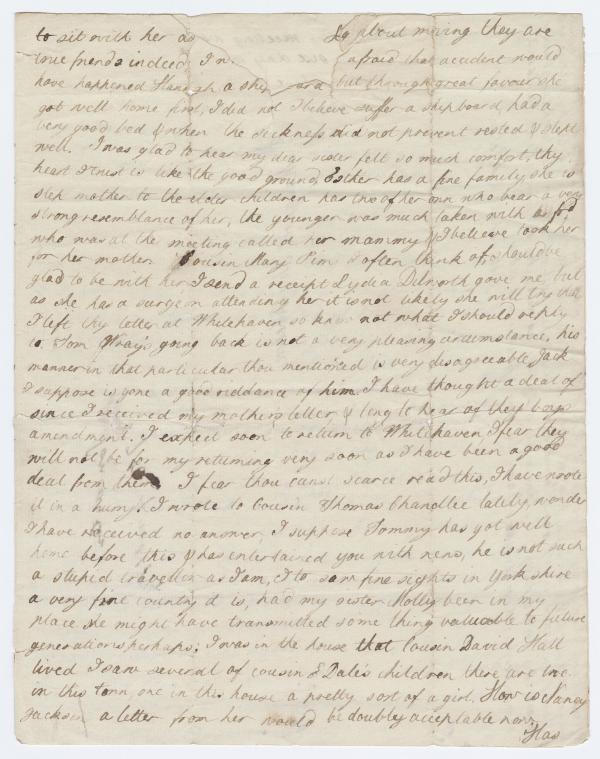 to sit with her as so about moving they are
true friends indeed I n afraid that accident would
have happened Hannah a ship and but through great favour she
got well home first, I did not I believe suffer a shipboard, had a
very good bed & when the sickness did not prevent rested & slept
well. I was glad to hear my dear sister felt so much comfort, thy
heart I trust is like the good ground, Esther has a fine family, she is
step mother to the elder children has two of her own who bear a very
strong resemblance of her, the younger was much taken with a frd
who was at the meeting called her mammy & I believe took her
for her mother. Cousin Mary Pim I often think of, should be
glad to be with her, I send a receipt Lydia Dilworth gave me, but
as she has a surgeon attending her it is not likely she will try that
I left thy letter at Whitehaven so know not what I should reply
to. Tom Wray's going back is not a very pleasing circumstance, his
manner in that particular thou mentioned is very disagreeable, Jack
I suppose is gone a good riddance of him. I have thought a deal of
since I received my mothers letter & long to hear of they boys
amendment. I expect soon to return to Whitehaven I fear they
will not be for my returning very soon as I have been a good
deal from them I fear thou canst scarce read this, I have wrote
it in a hurry. I wrote to Cousin Thomas Chandlee lately, wonder
I have received no answer, I suppose Tommy has got well
home before this & has entertained you with news, he is not such
a stupid traveller as I am, I to saw fine sights in York shire
a very fine country it is, had my sister Molly been in my
place she might have transmitted some thing valuable to future
generations perhaps; I was in the house that Cousin David Hall
lived I saw several of cousin E Dale's children there are two
in this town, one in this house a pretty sort of a girl. How is Nancy
Jackson a letter from her would be doubly acceptable now,
Has